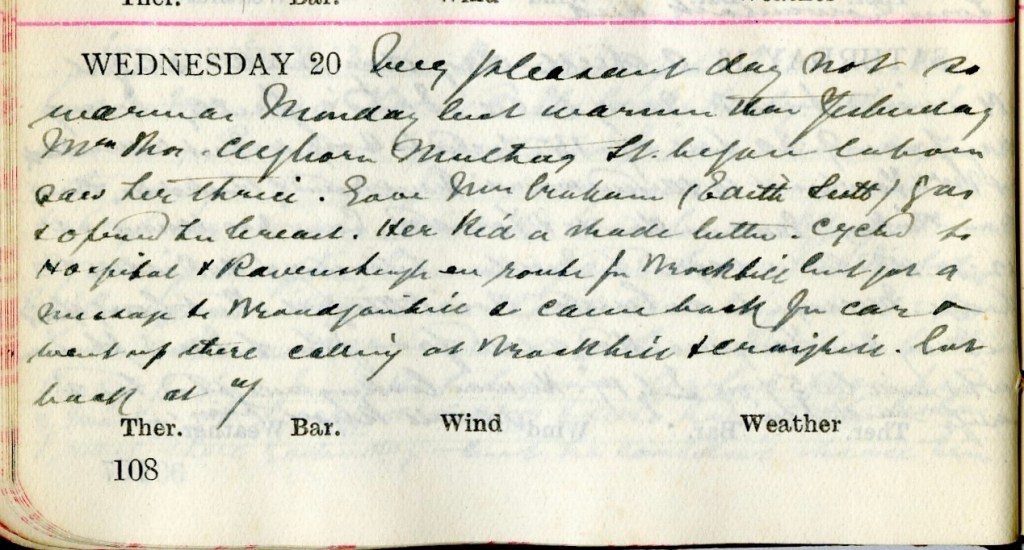 Ther. Bar. Wind Weather
WEDNESDAY 20 Very pleasant day not so
warm as Monday but warmer than Yesterday
Mrs Thos. Cleghorn St. began labour
saw her thrice. Gave Mrs Graham (Edith Lutt) gas
& opened her breast. Her Kid a shade better. Cycled to
Hospital & Ravensheugh en route for Brockhill but got a
message to so came back for car &
went up there calling at Brockhill & Craighill. Got
back at
Ther. Bar. Wind Weather
108